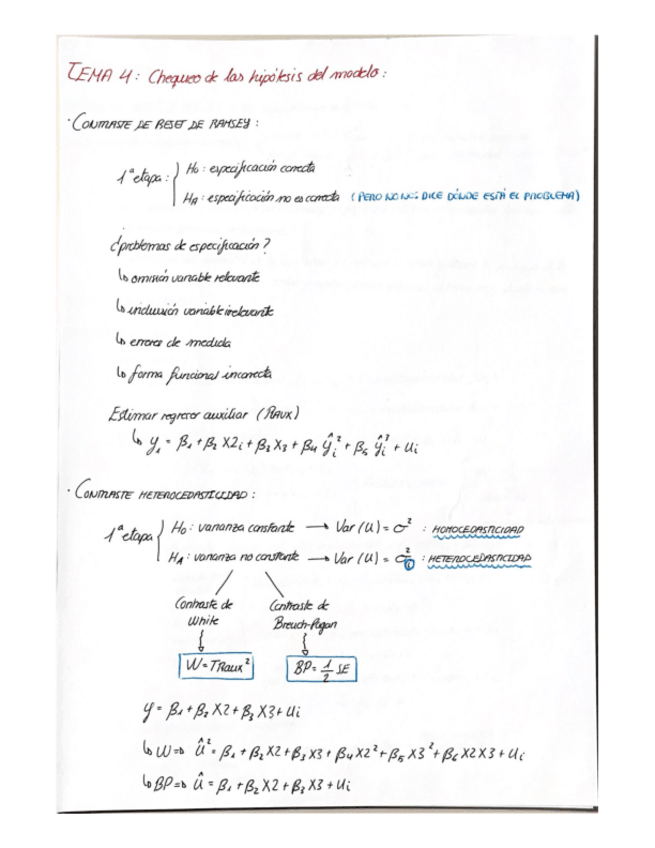 TEMA 4: Chequeo de las hipótesis del modelo:
· CONTRASTE DE RESET DE RAMSEY:
1ª etapa: { H₀: especificación correcta
H_A: especificación no es correcta (PERO NO NOS DICE DÓNDE ESTÁ EL PROBLEMA)
¿problemas de especificación?
↳ omisión variable relevante
↳ inclusión variable irrelevante
↳ errores de medida
↳ forma funcional incorrecta
Estimar regresor auxiliar (RAUX)
↳ y₁ = β₁ + β₂ X2ᵢ + β₃ X₃ + β₄ ŷᵢ² + β₅ ŷᵢ³ + uᵢ
· CONTRASTE HETEROCEDASTICIDAD:
1ª etapa { H₀: varianza constante → Var (u) = σ² : HOMOCEDASTICIDAD
H_A: varianza no constante → Var (u) = σ²ᵢ : HETEROCEDASTICIDAD
Contraste de White
Contraste de Breuch-Pagan
W = TRaux²
BP = 1/2 SE
y = β₁ + β₂ X2 + β₃ X3 + uᵢ
↳ W ⇒ û² = β₁ + β₂ X2 + β₃ X3 + β₄ X2² + β₅ X3² + β₆ X2X3 + uᵢ
↳ BP ⇒ û = β₁ + β₂ X2 + β₃ X3 + uᵢ